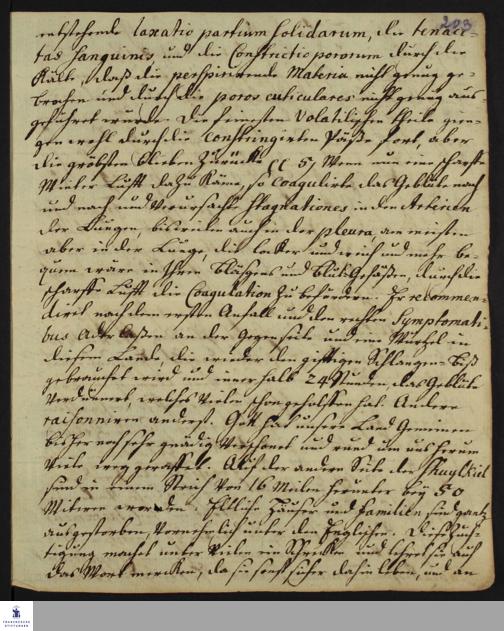 203
entstehende laxatio partium solidarum, die tenaci-
tas Sanguinis und die Constrictio pororum durch die
Kälte, daß die perspirirende Materia nicht genug ge-
brochen und durch die poros cuticulares nicht genug aus-
geführet werde. Die feinesten Volatilische theile gien-
gen wohl durch die Constringirten Päße fort, aber
die gröbsten blieben zurücke 5) Wenn nun eine scharffe
Winter Lufft dazu käme, so coagulirte das Geblüte nach
und nach und verursache Stagnationes in den Arterien
der Lungen, bisweilen auch in der pleura, am meisten
aber in der Lunge, die locker und weich und mehr be-
quem wäre in ihren Bläsgens und Blut Gefäßen, durch die
scharffe Lufft die Coagulation zu befördern. Er recommen-
dirt nach dem ersten Anfall und den rechten Symptomati-
bus Aderlaßen an der Gegenseite und eine Wurtzel in
diesem Lande, die wieder den gifftigen Schlangen-Biß
gebrauchet wird und innerhalb 24 Stunden, das Geblüte
verdünnert, welches viele schon geholffen hat. Andere
raisonniren anderst. Gott hat unsere Land Gemeinen
bisher noch sehr gnädig verschonet und rund um uns herum
viele weg geraffet. Auf der andern Seite der Skuylkiel
sind in einem Strich von 16 Meilen herunter bey 50
Witwen worden. Etliche Häuser und Familien sind gantz
ausgestorben, vornehmlich unter den Englischen. Diese Züch-
tigung machet unter vielen ein Schrecken und lehret sie auch
das Wort mercken, da sie sonst sicher dahin leben, und an
FRANCKESCHE
STIFTUNGEN